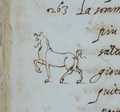 263 La somm
piu
salt
giou
quit